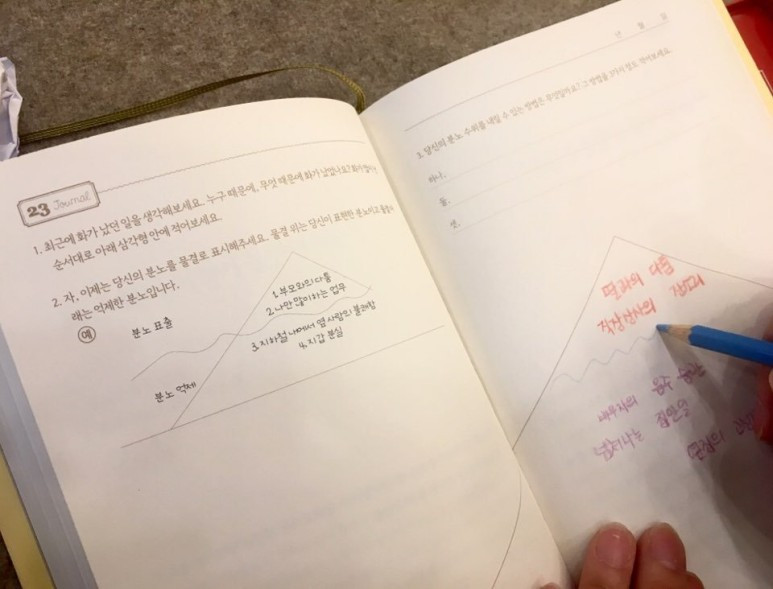 23 Journal
1. 최근에 화가 났던 일을 생각해보세요. 누구 때문에, 무엇 때문에 화가 났었나요?
순서대로 아래 삼각형 안에 적어보세요.
2. 자, 이제는 당신의 분노를 물결로 표시해주세요. 물결 위는 당신이 표현한 분노이고
래는 억제한 분노입니다.
예
분노 표출
1. 부모와의 다툼
2. 나만 많이하는 업무
3. 지하철 나에서 옆 사람의 불쾌함
4. 지갑 분실
분노 억제
년 월 일
3. 당신의 분노 수위를 내릴 수 있는 방법은 무엇일까요? 그 방법을 3가지 정도 적어보세요.
하나,
둘,
셋,
다툼
직장 상사의
배우자의 음주
넘쳐나는 집안일